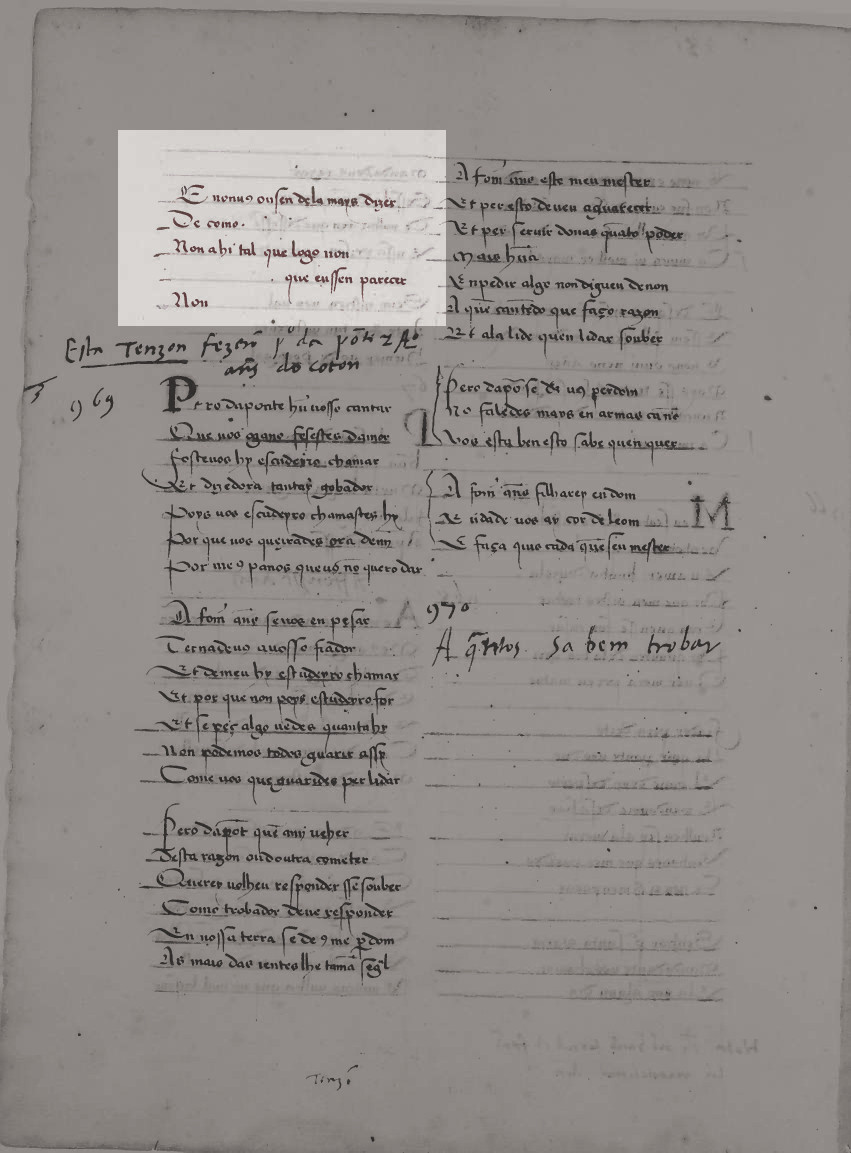 E nonuꝯ ousen dela mays dizer
De como
Non ahi tal que logo non
que eussen parecer
Non
Esta Tenzon fezerõ pº da põt z Afº
ans do coton
969
Pero daponte hũ uosso cantar
Que uos ogano fezestes damor
fostes uos hy escudeyro chamar
Et dizedora tantay gobador
Poys uos escudeyro chamastes hy
Por que uos queixades ora
Por meꝯ panos que uꝯ nõ quero dar
Afom ãnẽ seuos en pesar
Tornadeuꝯ auosso fiador
Et demeu hy escudeyro chamar
Et por que non poys escudeyro for
Et se peç algo uedes quantahy
Non podemos todos guarir assy
Come uos que guarides per lidar
Pero dapõt quẽ amj ueher
Desta razon ou doutra cometer
Querey uolheu responder ssẽ souber
Como trobador deue responder
En nossa terra se deꝯ me ꝑdom
As mais das ientes lhe
Tenzõ
Afom ãnẽ este meu mester
Et per esto deueu aguarecer
Et per seruir donas quãto poder
Mays hũa
En pedir algo non digueu denon
A quẽ entẽdo que faço razon
Et ala lide quen lidar souber
Pero dapõ se deꝯ uꝯ perdom
No faledes mays en armas ca nõ
Uos esta ben esto sabe quen quer
Afom ãnẽ filharey eu dom
E uidade uos ay cor de leom
E faça quis cada quẽ seu mester
M
970
A q̃ntos sabem trobar